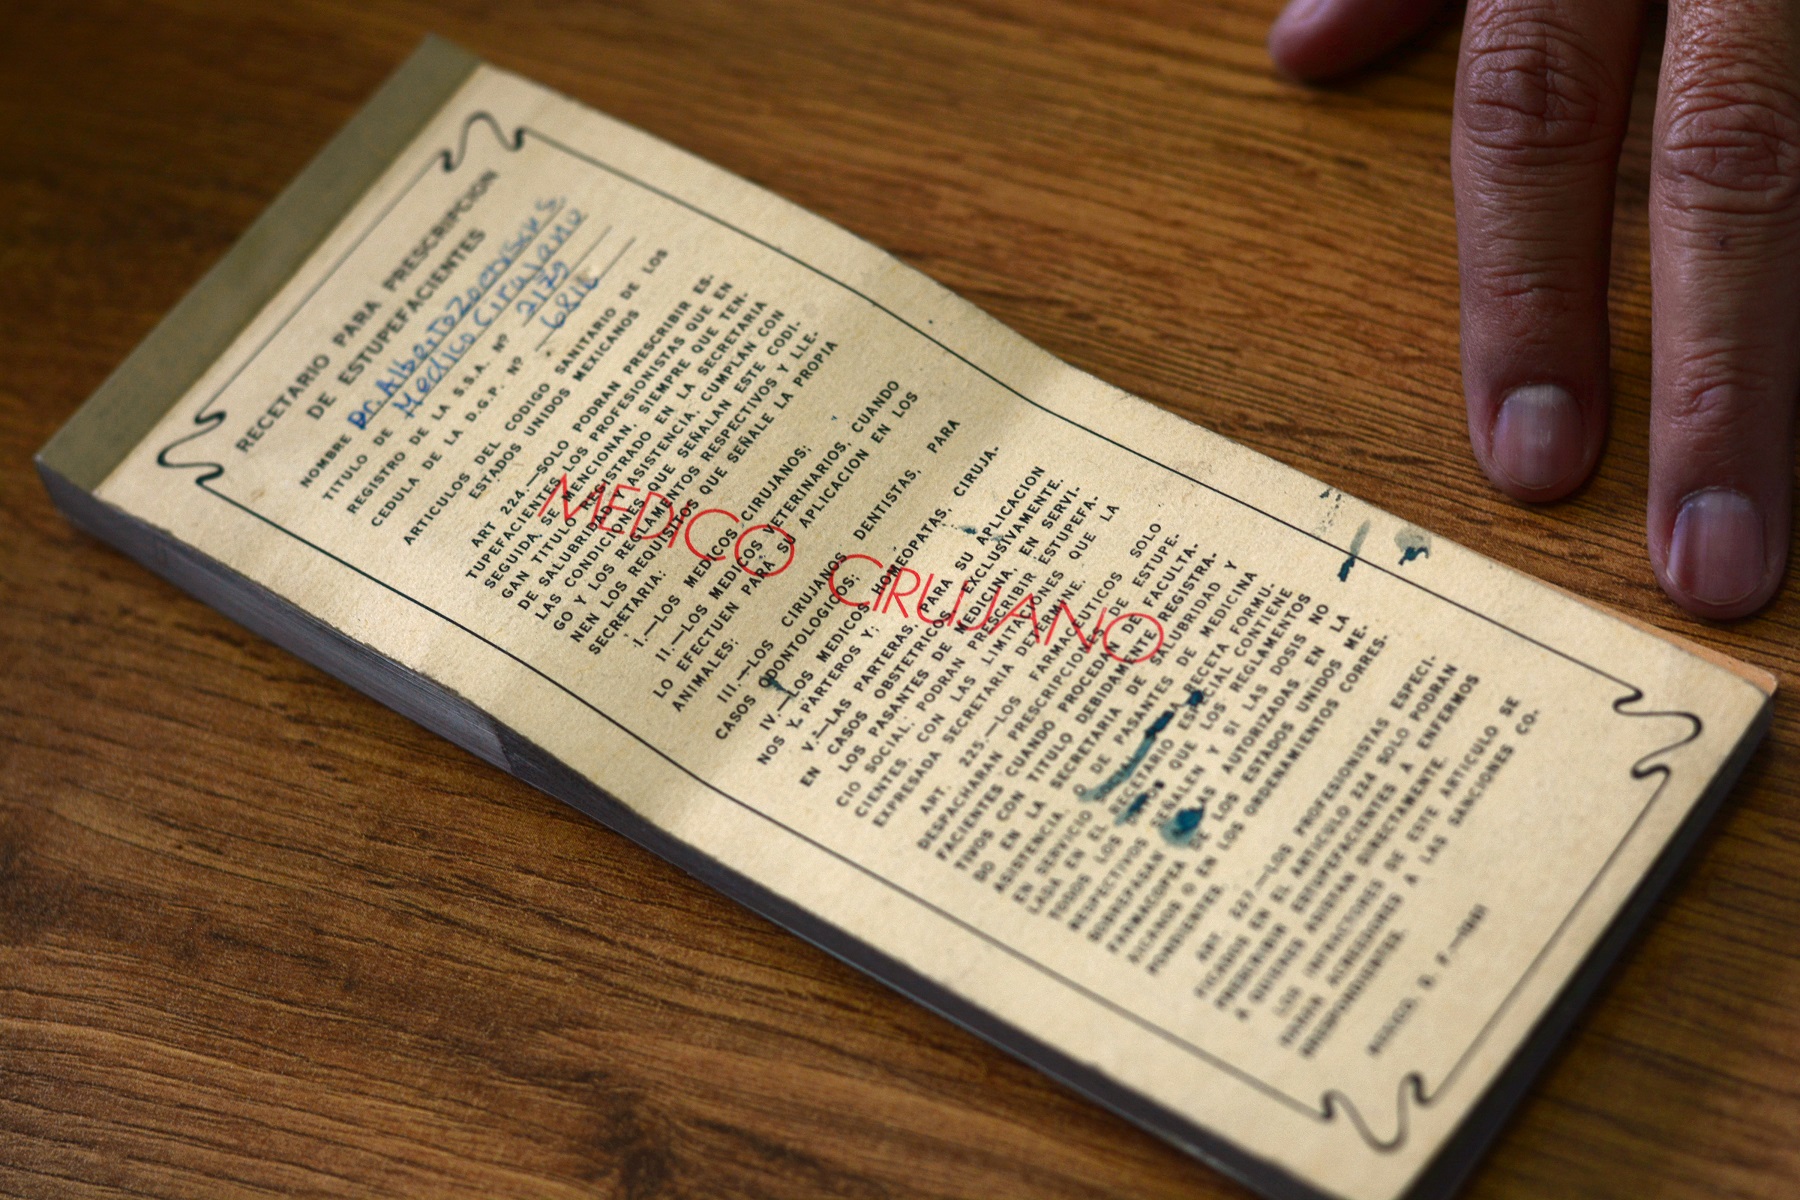 RECETARIO PARA PRESCRIPCION
DE ESTUPEFACIENTES
NOMBRE Dr. Alberto
TITULO DE Medico Cirujano
REGISTRO DE LA S.S.A. Nº 2179
CEDULA DE LA D.G.P. Nº
ARTICULOS DEL CODIGO SANITARIO DE LOS
ESTADOS UNIDOS MEXICANOS
ART 224.—SOLO PODRAN PRESCRIBIR ES-
TUPEFACIENTES LOS PROFESIONISTAS QUE EN
SEGUIDA SE MENCIONAN, SIEMPRE QUE TEN-
GAN TITULO REGISTRADO EN LA SECRETARIA
DE SALUBRIDAD Y ASISTENCIA, CUMPLAN CON
LAS CONDICIONES QUE SEÑALAN ESTE CODI-
GO Y LOS REGLAMENTOS RESPECTIVOS Y LLE-
NEN LOS REQUISITOS QUE SEÑALE LA PROPIA
SECRETARIA:
I.—LOS MEDICOS CIRUJANOS;
II.—LOS MEDICOS VETERINARIOS, CUANDO
LO EFECTUEN PARA SU APLICACION EN LOS
ANIMALES;
III.—LOS CIRUJANOS DENTISTAS, PARA
CASOS ODONTOLOGICOS;
IV.—LOS MEDICOS HOMEOPATAS, CIRUJA-
NOS Y PARTEROS Y;
V.—LAS PARTERAS, PARA SU APLICACION
EN CASOS OBSTETRICOS, EXCLUSIVAMENTE.
LOS PASANTES DE MEDICINA, EN SERVI-
CIO SOCIAL; PODRAN PRESCRIBIR ESTUPEFA-
CIENTES, CON LAS LIMITACIONES QUE LA
EXPRESADA SECRETARIA DETERMINE.
ART. 225.—LOS FARMACEUTICOS SOLO
DESPACHARAN PRESCRIPCIONES DE ESTUPE-
FACIENTES CUANDO PROCEDAN DE FACULTA-
TIVOS CON TITULO DEBIDAMENTE REGISTRA-
DO EN LA SECRETARIA DE SALUBRIDAD Y
ASISTENCIA, O DE PASANTES DE MEDICINA
EN SERVICIO RECETA FORMU-
LADA EN EL RECETARIO ESPECIAL CONTIENE
TODOS LOS QUE LOS REGLAMENTOS
RESPECTIVOS SEÑALEN Y SI LAS DOSIS NO
SOBREPASAN LAS AUTORIZADAS EN LA
FARMACOPEA DE LOS ESTADOS UNIDOS ME-
XICANOS O EN LOS ORDENAMIENTOS CORRES-
PONDIENTES.
ART. 227.—LOS PROFESIONISTAS ESPECI-
FICADOS EN EL ARTICULO 224 SOLO PODRAN
PRESCRIBIR ESTUPEFACIENTES A ENFERMOS
A QUIENES ASISTAN DIRECTAMENTE.
LOS INFRACTORES DE ESTE ARTICULO SE
HARAN ACREEDORES A LAS SANCIONES CO-
RRESPONDIENTES.
MEXICO, D. F.—1961
MEDICO CIRUJANO